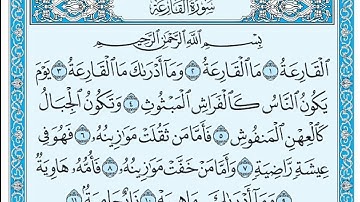 سُورَةُ القَارِعَةِ
بِسْمِ اللَّهِ الرَّحْمَٰنِ الرَّحِيمِ
الْقَارِعَةُ ١ مَا الْقَارِعَةُ ٢ وَمَا أَدْرَىٰكَ مَا الْقَارِعَةُ ٣ يَوْمَ
يَكُونُ النَّاسُ كَالْفَرَاشِ الْمَبْثُوثِ ٤ وَتَكُونُ الْجِبَالُ
كَالْعِهْنِ الْمَنفُوشِ ٥ فَأَمَّا مَن ثَقُلَتْ مَوَٰزِينُهُۥ ٦ فَهُوَ فِي
عِيشَةٍ رَّاضِيَةٍ ٧ وَأَمَّا مَنْ خَفَّتْ مَوَٰزِينُهُۥ ٨ فَأُمُّهُۥ هَاوِيَةٌ
٩ وَمَا أَدْرَىٰكَ مَا هِيَهْ ١٠ نَارٌ حَامِيَةٌ ١١